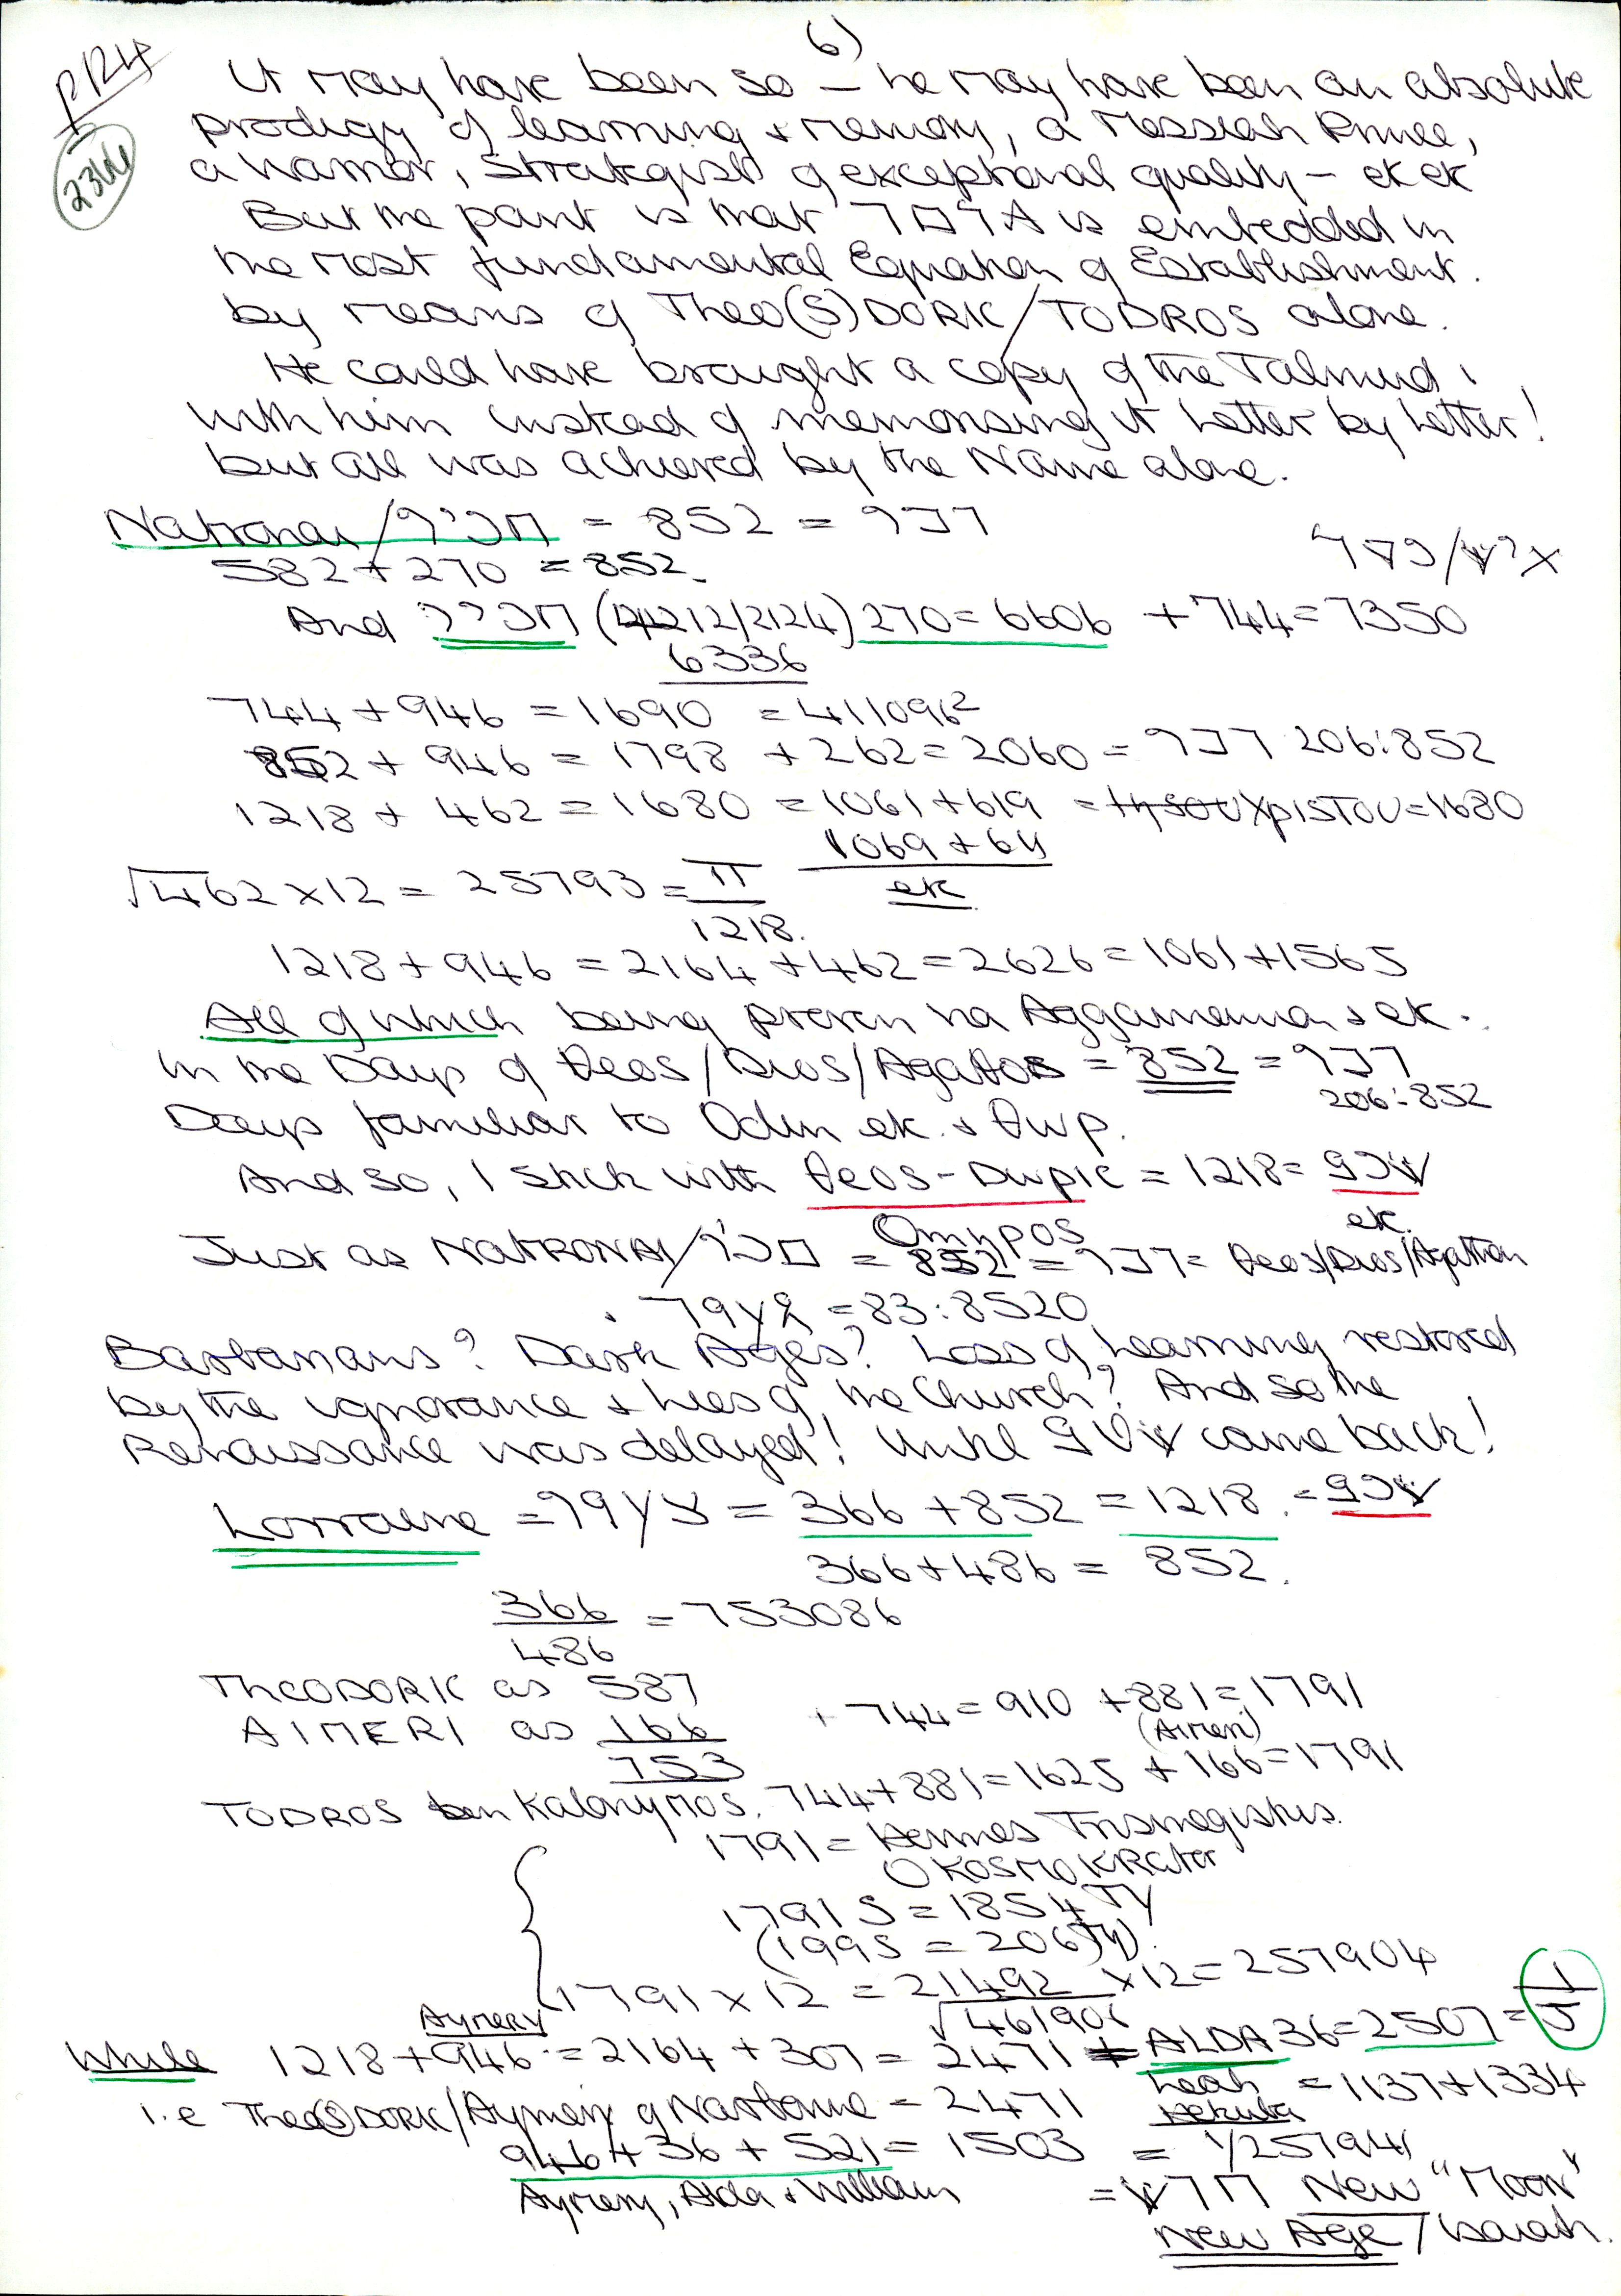 6)
P124
2344
It may have been so — he may have been an absolute
prodigy of learning + memory, a Messiah Prince,
a warrior, strategist of exceptional quality — etc etc
But the point is that is embedded in
the most fundamental Equation of Establishment.
by means of Theo(S)DORIC/TODROS alone.
He could have brought a copy of the Talmud
with him instead of memorising it letter by letter!
but all was achieved by the Name alone.
Natronai / = 852 =
582 + 270 = 852.
And (212/2124) 270 = 6606 + 744 = 7350
6336
744 + 946 = 1690 = 411096²
852 + 946 = 1798 + 262 = 2060 = 206:852
1218 + 462 = 1680 = 1061 + 619 = XPISTOU = 1680
1069 + 611
etc
√462 x 12 = 25793 = π
1218.
1218 + 946 = 2164 + 462 = 2626 = 1061 + 1565
All of which being proven via Aggamemnon & etc.
In the Days of θeos/Dios/Agathos = 852 =
206:852
Days familiar to Odin etc. & θwp.
And so, I stick with θeos-Dwpic = 1218 =
etc.
Omnpos
Just as NATRONAI/ = 852 = = θeos/Dios/Agathon
= 83:8520
Barbarians? Dark Ages? Loss of Learning restored
by the ignorance & lies of the Church? And so the
Renaissance was delayed! Until came back!
Lorraine = = 366 + 852 = 1218. =
366 + 486 = 852.
366 = 753086
486
THEODORIC as 587
AIMERI as 166 + 744 = 910 + 881 = 1791
(Aimeri)
753
TODROS ben Kalonymos. 744 + 881 = 1625 + 166 = 1791
1791 = Hermes Trismegistus.
O KOSMOKRator
1791 S = 1854 TY
(199S = 206 TY).
1791 x 12 = 21492 x 12 = 257904
√461906
Aymery
While 1218 + 946 = 2164 + 307 = 2471 + ALDA 36 = 2507 = 1/5
Leah = 1137 + 1334
i.e Theo(S)DORIC/Aymery of Narbonne = 2471
946 + 36 + 521 = 1503 = 1/257941
Aymery, Alda & William = New "Moon"
New Age / Isaiah.